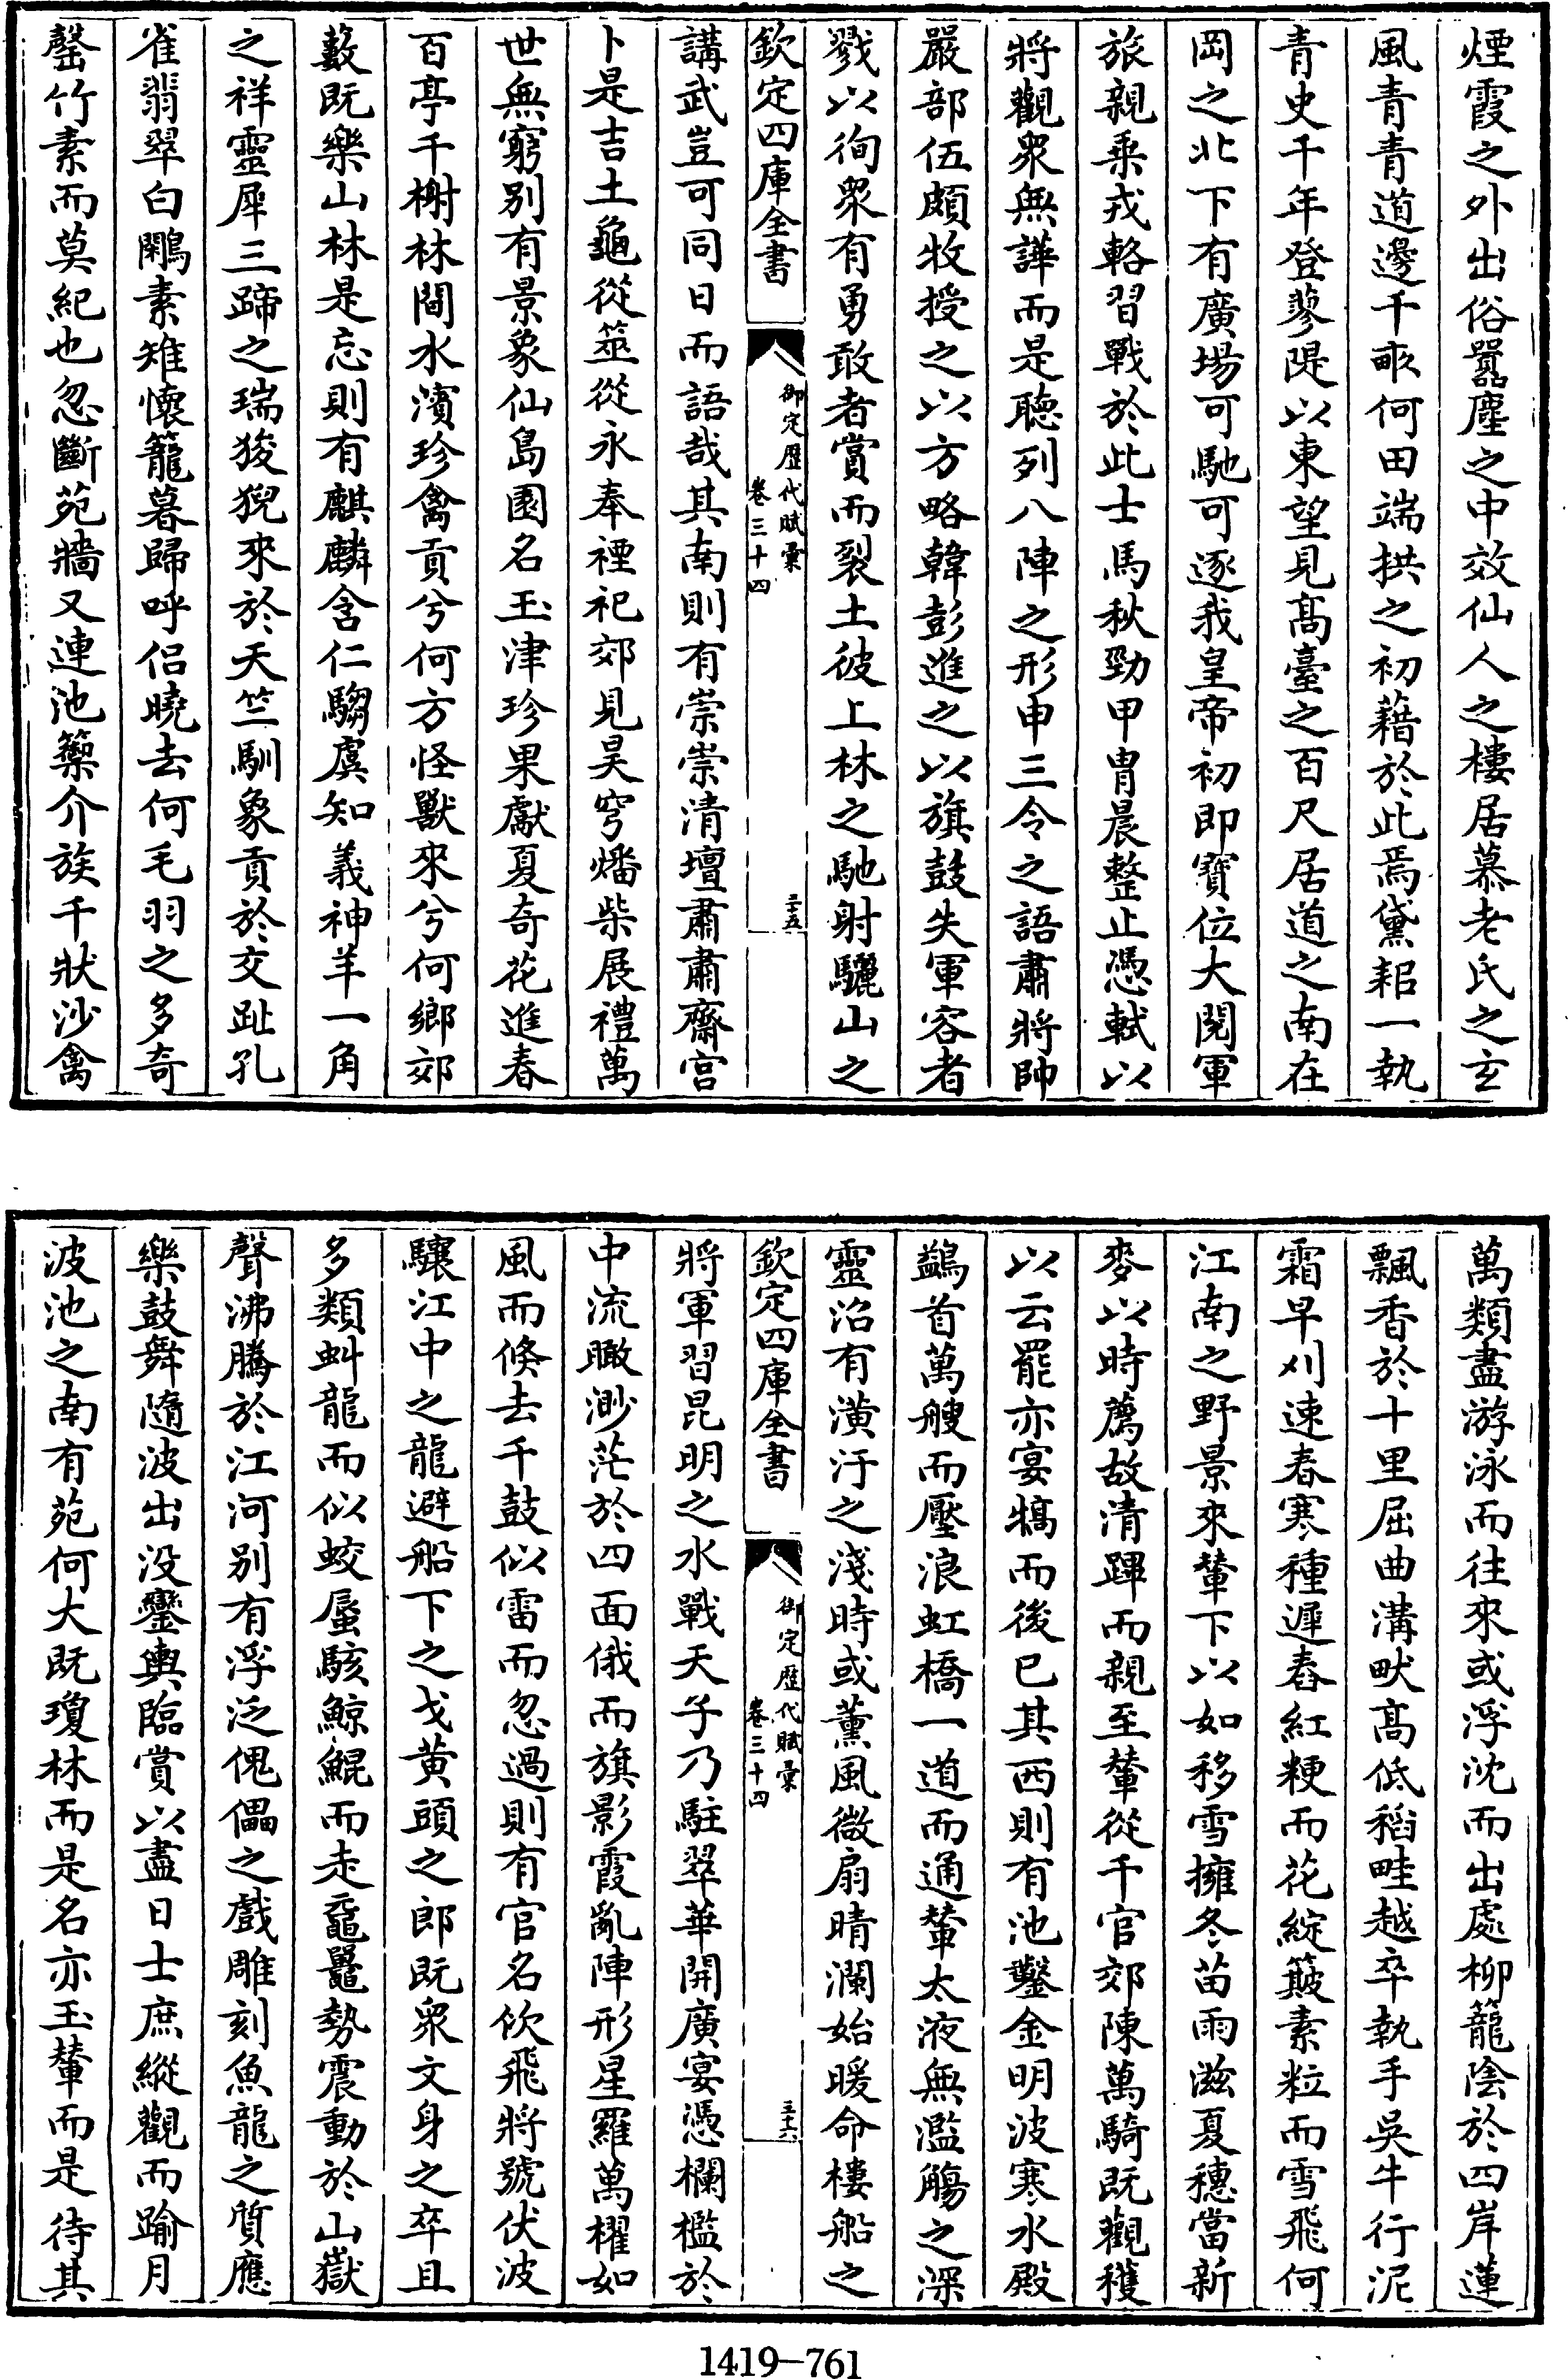 煙霞之外出俗囂塵之中效仙人之樓居慕老氏之玄
風青青道邊千畝何田端拱之初藉於此焉黛耜一執
青史千年登蓼隄以東望見髙臺之百尺居道之南在
岡之北下有廣場可馳可逐我皇帝初即寶位大閱軍
旅親乗戎輅習戰於此士馬秋勁甲胄晨整止憑軾以
將觀衆無譁而是聽列八陣之形申三令之語肅將帥
嚴部伍頗牧授之以方略韓彭進之以旗鼓失軍容者
戮以徇衆有勇敢者賞而裂土彼上林之馳射驪山之
欽定四庫全書
御定歴代賦彙
卷三十四
三十五
講武豈可同日而語哉其南則有崇崇清壇肅肅齋宫
卜是吉土龜從筮從永奉禋祀郊見昊穹燔柴展禮萬
世無窮别有景象仙島園名玉津珍果獻夏奇花進春
百亭千榭林間水濱珍禽貢兮何方怪獸來兮何鄉郊
藪既樂山林是忘則有麒麟含仁騶虞知義神羊一角
之祥靈犀三蹄之瑞狻猊來於天竺馴象貢於交趾孔
雀翡翠白鷴素雉懷籠暮歸呼侣曉去何毛羽之多奇
罄竹素而莫紀也忽斷苑牆又連池籞介族千狀沙禽
萬類盡游泳而往來或浮沈而出處柳籠陰於四岸蓮
飄香於十里屈曲溝畎髙低稻畦越卒執手吳牛行泥
霜早刈速春寒種遲舂紅粳而花綻簸素粒而雪飛何
江南之野景來輦下以如移雪擁冬苗雨滋夏穗當新
麥以時薦故清蹕而親至輦從千官郊陳萬騎既觀穫
以云罷亦宴犒而後已其西則有池鑿金明波寒水殿
鷁首萬艘而壓浪虹橋一道而通輦太液無濫觴之深
靈沼有潢汙之淺時或薰風微扇晴瀾始暖命樓船之
欽定四庫全書
御定歴代賦彙
卷三十四
三十六
將軍習昆明之水戰天子乃駐翠華開廣宴憑欄檻於
中流瞰渺茫於四面俄而旗影霞亂陣形星羅萬櫂如
風而倏去千鼓似雷而忽過則有官名佽飛將號伏波
驤江中之龍避船下之戈黄頭之郎既衆文身之卒且
多類虯龍而似蛟蜃駭鯨鯤而走黿鼉勢震動於山嶽
聲沸騰於江河别有浮泛傀儡之戲雕刻魚龍之質應
樂鼓舞隨波出没鑾輿臨賞以盡日士庶縱觀而踰月
波池之南有苑何大既瓊林而是名亦玉輦而是待其
1419-761